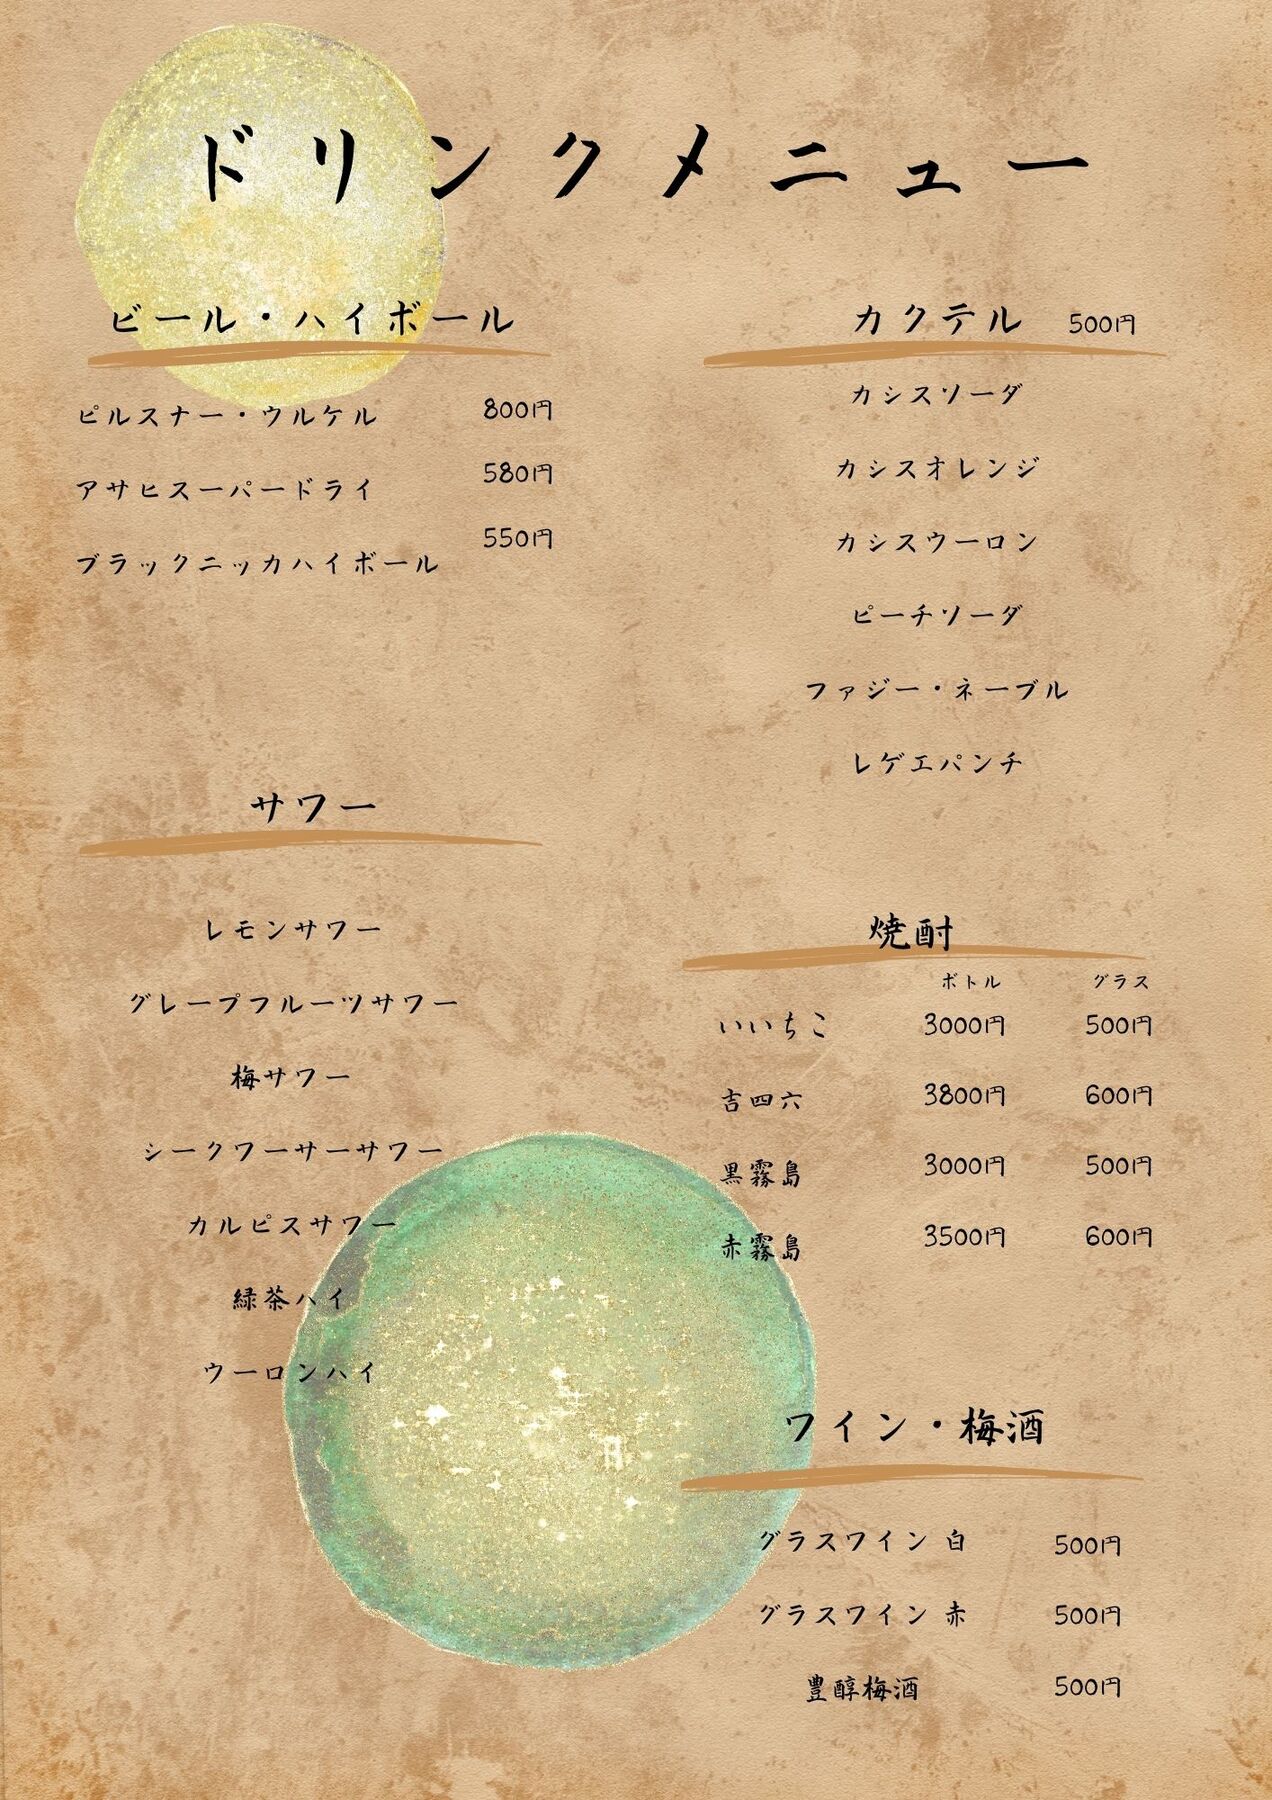 ドリンクメニュー
ビール・ハイボール
ピルスナー・ウルケル 800円
アサヒスーパードライ 580円
ブラックニッカハイボール 550円
カクテル 500円
カシスソーダ
カシスオレンジ
カシスウーロン
ピーチソーダ
ファジー・ネーブル
レゲエパンチ
サワー
レモンサワー
グレープフルーツサワー
梅サワー
シークワーサーサワー
カルピスサワー
緑茶ハイ
ウーロンハイ
焼酎
ボトル グラス
いいちこ 3000円 500円
吉四六 3800円 600円
黒霧島 3000円 500円
赤霧島 3500円 600円
ワイン・梅酒
グラスワイン 白 500円
グラスワイン 赤 500円
豊醇梅酒 500円